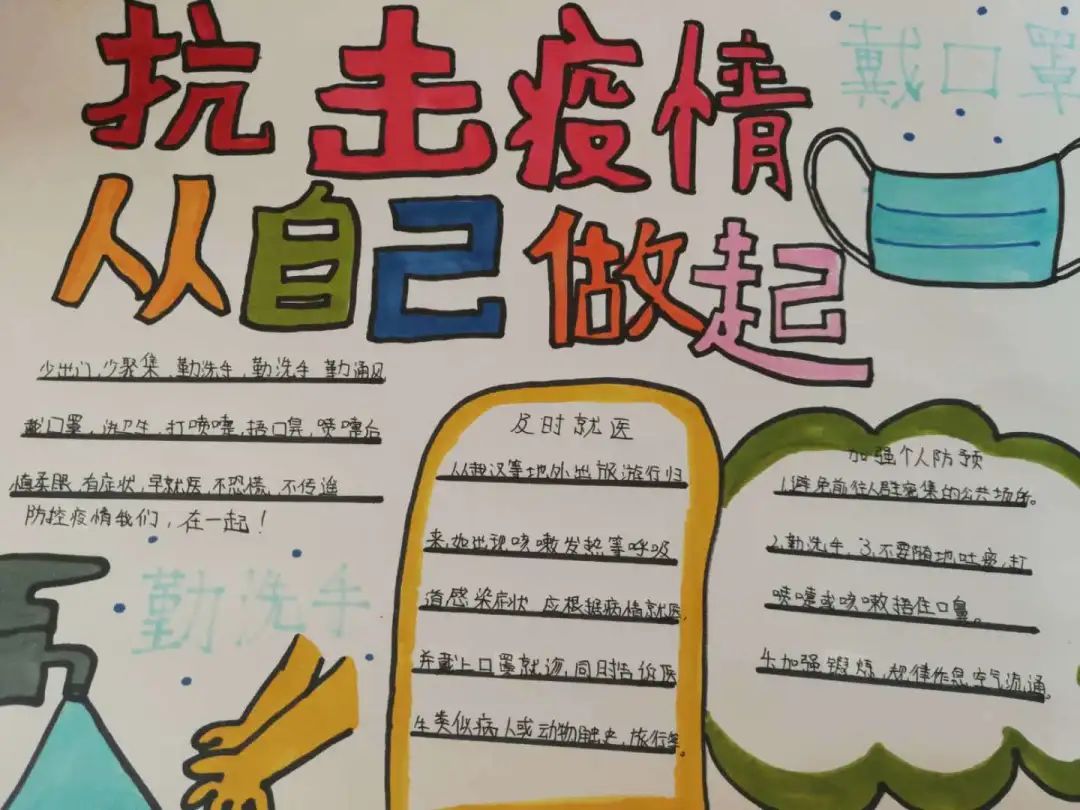 抗击疫情
戴口罩
从自己做起
少出门,少聚集,勤洗手,勤洗手 勤通风
戴口罩,讲卫生,打喷嚏,捂口鼻,喷嚏后
慎柔眼,有症状,早就医,不恐慌,不传谣
防控疫情我们,在一起!
勤洗手
及时就医
从武汉等地外出旅游行归
来,如出现咳嗽发热等呼吸
道感染症状,应根据病情就医,
并戴上口罩就诊,同时告诉医
生类似病人或动物触史,旅行等。
加强个人防预
1.避免前往人群密集的公共场所。
2.勤洗手,3.不要随地吐痰,打
喷嚏或咳嗽捂住口鼻。
4.加强锻炼,规律作息,空气流通。